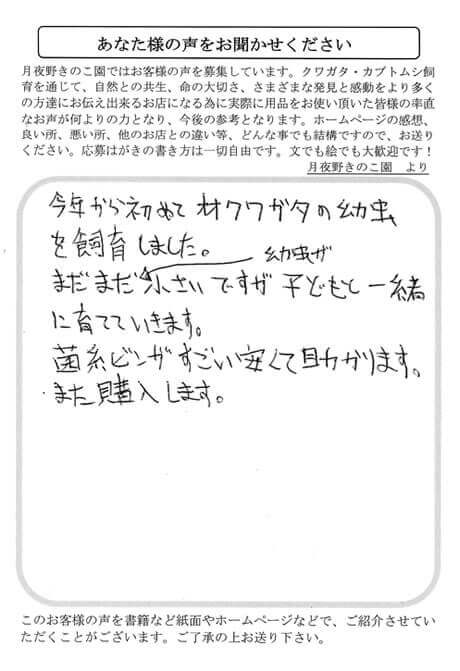 あなた様の声をお聞かせください
月夜野きのこ園ではお客様の声を募集しています。クワガタ・カブトムシ飼
育を通じて、自然との共生、命の大切さ、さまざまな発見と感動をより多く
の方達にお伝え出来るお店になる為に実際に用品をお使い頂いた皆様の率直
なお声が何よりの力となり、今後の参考となります。ホームページの感想、
良い所、悪い所、他のお店との違い等、どんな事でも結構ですので、お送り
ください。応募はがきの書き方は一切自由です。文でも絵でも大歓迎です！
月夜野きのこ園　より
今年から初めてオオクワガタの幼虫
を飼育しました。
幼虫が
まだまだ小さいですが子どもと一緒
に育てていきます。
菌糸ビンがすごい安くて助かります。
また購入します。
このお客様の声を書籍など紙面やホームページなどで、ご紹介させてい
ただくことがございます。ご了承の上お送り下さい。